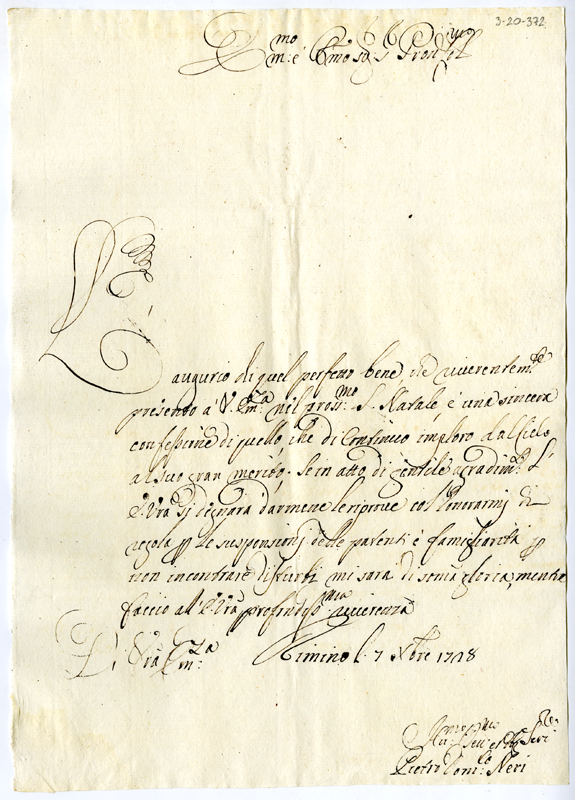 3-20-372
Em:mo è Rmo Sig:r Prone
L'augurio di quel perfetto bene, che riverentem:te
presento a V. Em:za nel pross:mo S. Natale è una sincera
confessione di quello, che di continuo imploro dal Cielo
al suo gran merito. Se in atto di gentile agradim:to L'
E. Vra si degnarà darmene le riprove col
regola le suspensioni delle patenti è famigliarità
non incontrare disturbi mi sarà di somma gloria, mentre
faccio all'E. Vra profundiss:ma riverenza
Di Vra Em:za Rimino li 7 Xbre 1718
Pietro Dom:co Neri